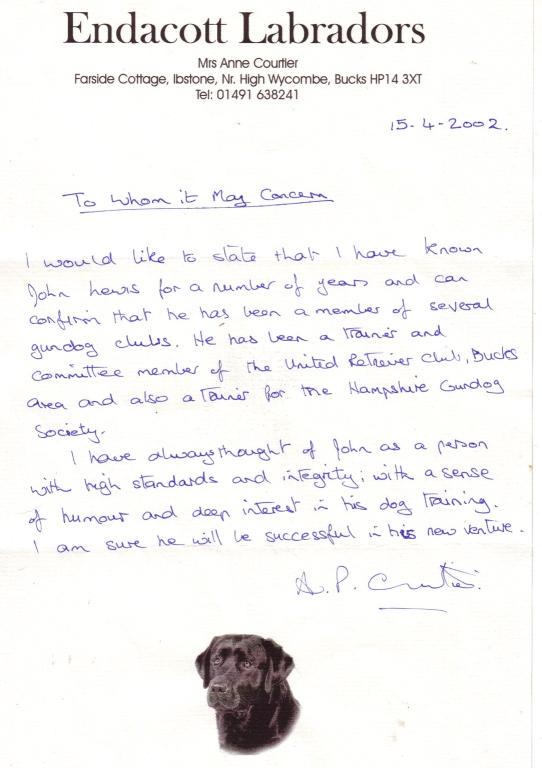 Endacott Labradors
Mrs Anne Courtier
Farside Cottage, Ibstone, Nr. High Wycombe, Bucks HP14 3XT
Tel: 01491 638241
15-4-2002.
To Whom it May Concern
I would like to state that I have known
John Lewis for a number of years and can
confirm that he has been a member of several
gundog clubs. He has been a trainer and
committee member of the United Retriever Club, Bucks
area and also a trainer for the Hampshire Gundog
Society.
I have always thought of John as a person
with high standards and integrity; with a sense
of humour and deep interest in his dog training.
I am sure he will be successful in his new venture.
A. P. Courtier.